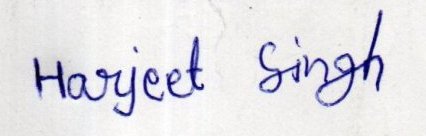 Harjeet Singh